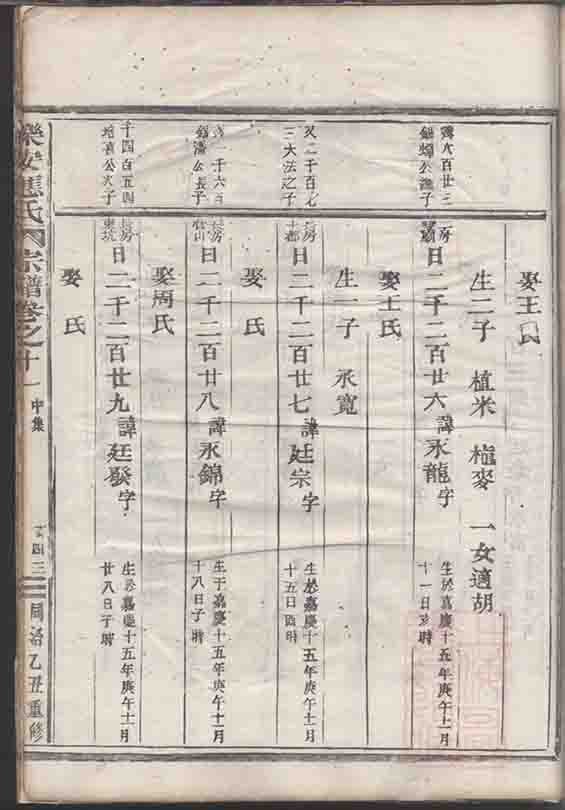 娶王氏
生二子 植米 植麥 一女適胡
二房
日二千二百廿六諱永龍字
生於嘉慶十五年庚午十一月
十一日亥時
娶王氏
生一子 永寬
三大法之子
長房
日二千二百廿七諱廷宗字
生於嘉慶十五年庚午十一月
十五日酉時
娶 氏
長房
日二千二百廿八諱永錦字
生于嘉慶十五年庚午十一月
十八日子時
娶周氏
千四百五四
公次子
長房
東坑
日二千二百廿九諱廷發字
生於嘉慶十五年庚午十一月
廿八日子時
娶 氏
樂安應氏 宗譜卷之十一 中集
同治乙丑重修